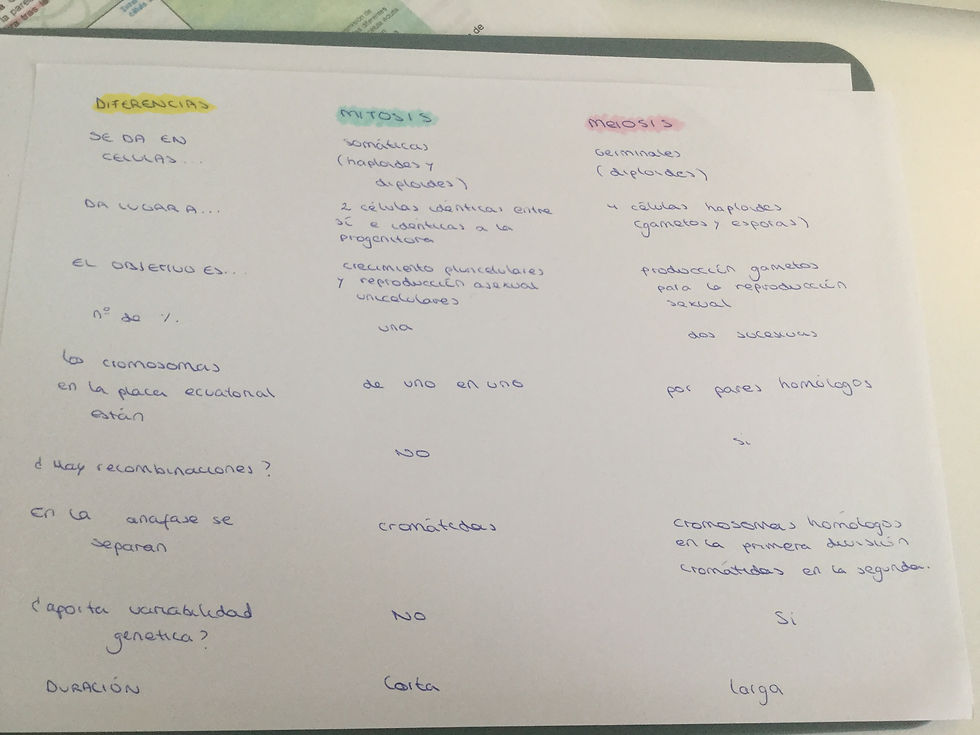 DIFERENCIAS
MITOSIS
MEIOSIS
SE DA EN
CELULAS...
somáticas
(haploides y
diploides)
Germinales
(diploides)
DA LUGAR A...
2 células idénticas entre
sí e idénticas a la
progenitora
4 células haploides
(gametos y esporas)
EL OBJETIVO ES...
crecimiento pluricelulares
y reproducción asexual
unicelulares
producción gametos
para la reproducción
sexual
nº de %.
una
dos sucesivas
Los cromosomas
en la placa ecuatorial
están
de uno en uno
por pares homólogos
¿Hay recombinaciones?
NO
Si
En la anafase se
separan
cromátidas
cromosomas homólogos
en la primera división
cromátidas en la segunda.
¿aporta variabilidad
genetica?
NO
Si
DURACIÓN
Corta
larga